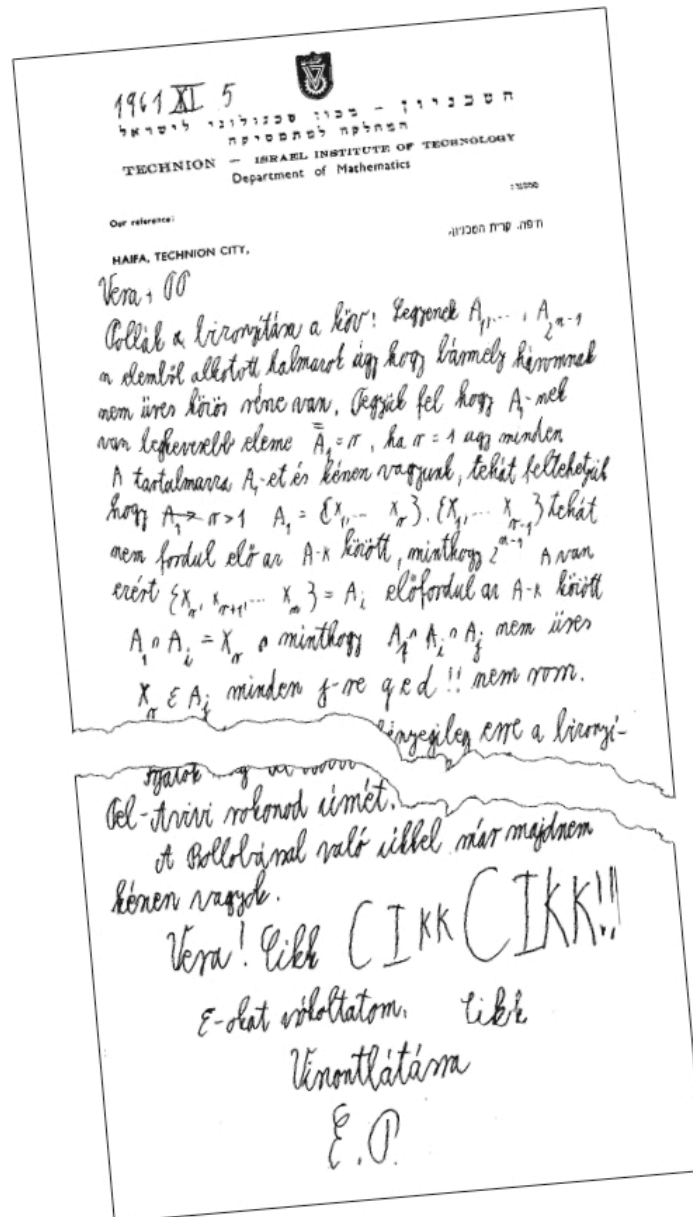 1961 XI 5
הטכניון – מכון טכנולוגי לישראל
המחלקה למתמטיקה
TECHNION – ISRAEL INSTITUTE OF TECHNOLOGY
Department of Mathematics
Our reference:
HAIFA, TECHNION CITY,
חיפה, קרית הטכניון,
Vera,
Pollák bizonyítása a köv: Legyenek A₁,..., A₂ⁿ⁻¹
n elemből alkotott halmazok úgy hogy bármely háromnak
nem üres közös része van. Tegyük fel hogy A₁-nek
van legkevesebb eleme A̿₁ = r, ha r = 1 úgy minden
A tartalmazza A₁-et és készen vagyunk, tehát feltehetjük
hogy r > 1 A₁ = {x₁,... xᵣ}. {x₁,... xᵣ₋₁} tehát
nem fordul elő az A-k között, minthogy 2ⁿ⁻¹ A van
ezért {xᵣ, xᵣ₊₁,... xₙ} = Aᵢ előfordul az A-k között
A₁ ∩ Aᵢ = xᵣ minthogy A₁ ∩ Aᵢ ∩ Aⱼ nem üres
xᵣ ε Aⱼ minden j-re q e d !! nem rossz.
lényegileg erre a bizonyí-
Tel-Avivi rokonod címét.
A Bollobással való cikkel már majdnem
készen vagyok.
Vera! Cikk CIKK CIKK!!
E-okat csókoltatom. Cikk
Viszontlátásra
E.P.